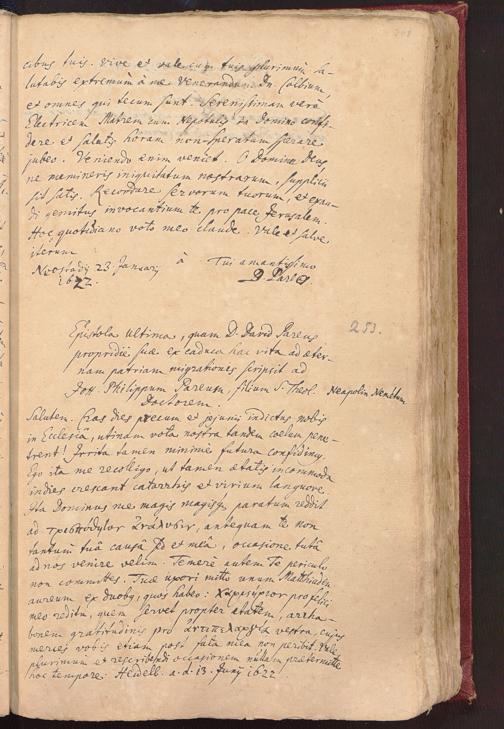 cibus tuis. Vive et vale cum tuis plurimum sa-
lutabis extremum à me Venerandum Dn.
et omnes qui tecum sunt. Serenissimam verò
Electricem Matrem cum Nepotulis in Domino confi-
dere et salutis horam non-speratam sperare
jubeo. Veniendo enim veniet. O Domine Deus
ne memineris iniquitatum nostrarum, supplicii
sit satis. Recordare servorum tuorum, et exau-
di gemitus invocantium te pro pace Jerusalem.
Hoc quotidiano voto meo claudo. Vale et salve
iterum.
Neostadij 23 Januarij à Tui amantissimo
1622. D. Pareo.
253.
Epistola ultima, quam D. David Pareus
propridiè suæ ex caduca hac vita ad æter-
nam patriam migrationis scripsit ad
Joh. Philippum Pareum, filium S. Theol. Neapolin Nemetum
Doctorem.
Salutem. Cras dies precum et jejunii indictus nobis
in Ecclesia, utinam vota nostra tandem coelum pene-
trent! Irrita tamen minime futura confidimus.
Ego ita me recolligo, ut tamen ætatis incommoda
indies crescant catarrhis et virium languore.
Ita Dominus me magis magisque paratum reddit
ad antequam te non
tantum tuâ causâ sed et meâ, occasione tutâ
ad nos venire velim. Temerè autem te periculo
non committes. Tuæ uxori mitto unum Matthiadem
aureum ex duobus, quos habeo: pro felici
meo reditu, quem servet propter ætatem, arrha-
bonem gratitudinis pro vestra, cujus
merces vobis etiam post fata mea non peribit. Vale
plurimum et rescribendi occasionem nullam prætermitte
hoc tempore. Heidelb. a. d. 13. Junij 1622